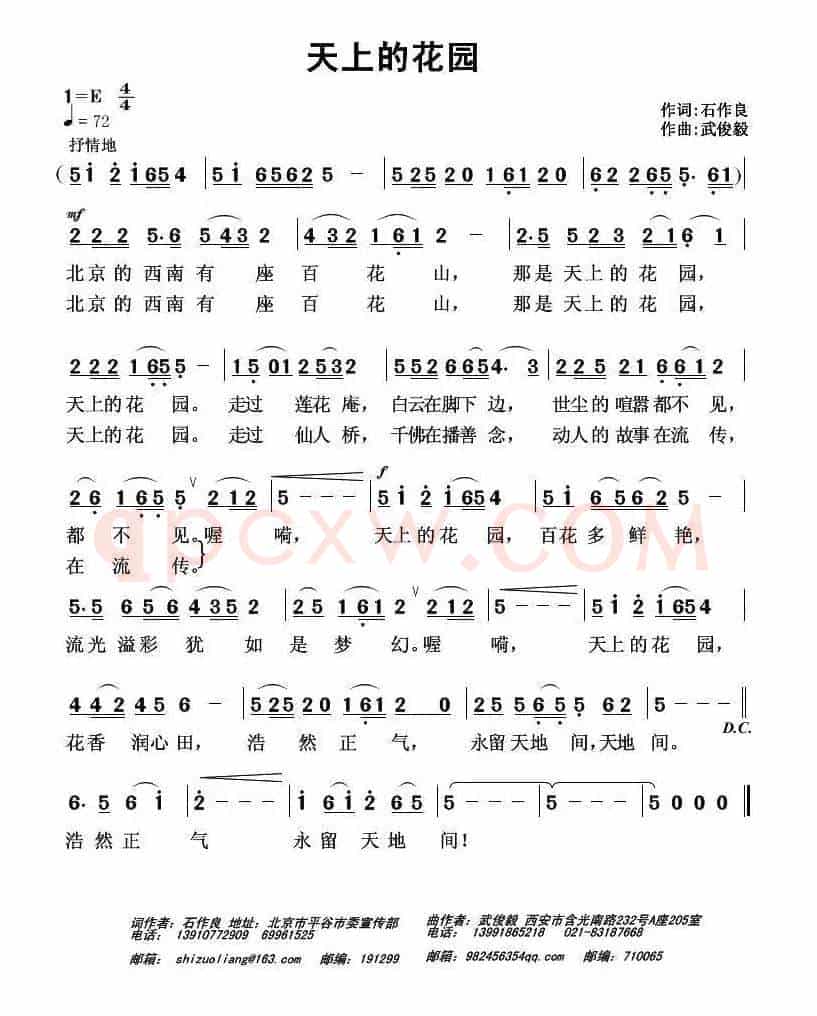 天上的花园
1=E 4/4
♩= 72
抒情地
作词:石作良
作曲:武俊毅
(5 1 2 1654 | 51 65625 - | 52520 16120 | 62 2655· 61)
mf
2 2 2 5·6 5432 | 432 1612 - | 5·5 523 216 1 |
北京的西南有 座 百 花 山， 那是天上的花园，
北京的西南有 座 百 花 山， 那是天上的花园，
222 1655 - | 15 012532 | 552 6654· 3 | 2 25 21 6612 |
天上的花 园。 走过 莲花 庵， 白云在脚下 边， 世尘的喧嚣都不 见，
天上的花 园。 走过 仙人 桥， 千佛在播善 念， 动人的故事在流 传，
26 1655 V 212 | 5 - - - | f 51 21654 | 51 65625 |
都 不 见。喔 嗬， 天上的花 园， 百花多鲜 艳，
在 流 传。
5·5 656 4352 | 25 1612 V 212 | 5 - - - | 51 21654 |
流光溢彩 犹 如 是 梦 幻。喔 嗬， 天上的花 园，
442 45 6 - | 52520 1612 0 | 25 5655 62 5 | 5 - - - ‖
D.C.
花香 润心田， 浩 然 正 气， 永留天地 间，天地 间。
6· 5 6 1 | 2 - - - | 1 61 2 65 | 5 - - - | 5 - - - | 5 0 0 0 ‖
浩 然 正 气 永 留 天 地 间！
qpcxw.COM
词作者：石作良 地址：北京市平谷市委宣传部
电话： 13910772909 69961525
邮箱： shizuoliang@163.com 邮编：191299
曲作者：武俊毅 西安市含光南路232号A座205室
电话： 13991865218 021-83187668
邮箱： 982456354qq.com 邮编：710065